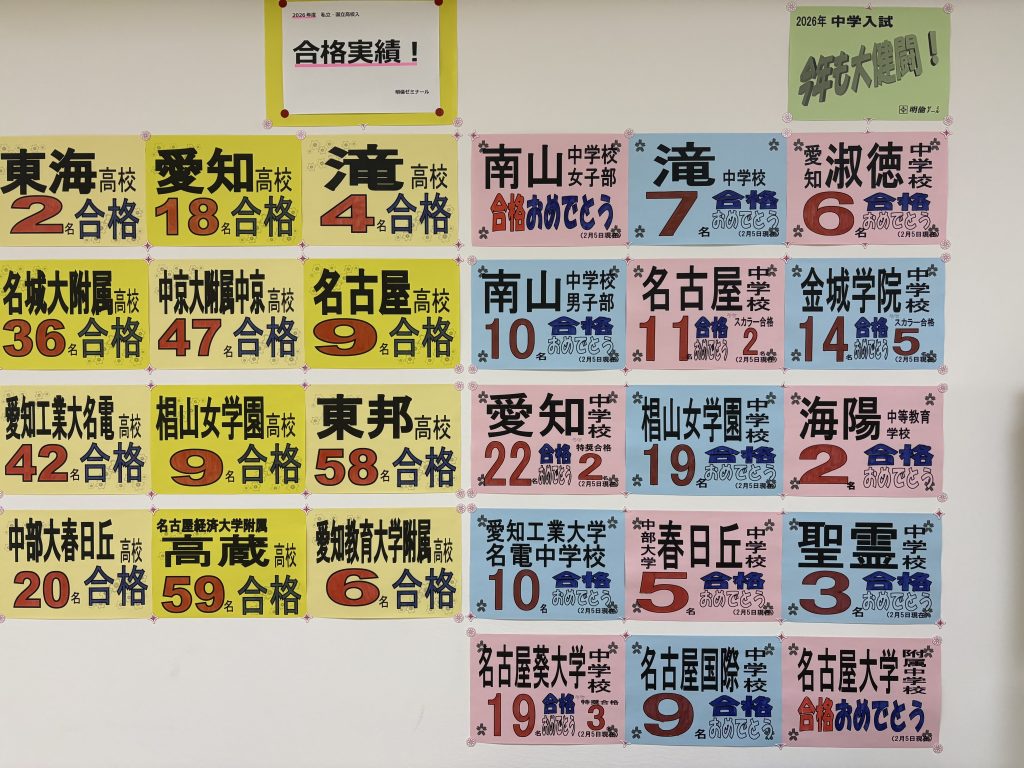 2026年度 私立・国立高校入
合格実績！
明倫ゼミナール
東海高校
2名合格
愛知高校
18名合格
滝高校
4名合格
名城大附属高校
36名合格
中京大附属中京高校
47名合格
名古屋高校
9名合格
愛知工業大名電高校
42名合格
椙山女学園高校
9名合格
東邦高校
58名合格
中部大春日丘高校
20名合格
名古屋経済大学附属
高蔵高校
59名合格
愛知教育大学附属高校
6名合格
2026年 中学入試
今年も大健闘！
明倫ゼミ
南山中学校女子部
合格おめでとう
(2月5日現在)
滝中学校
7名合格おめでとう
(2月5日現在)
愛知淑徳中学校
6名合格おめでとう
(2月5日現在)
南山中学校男子部
10名合格おめでとう
(2月5日現在)
名古屋中学校
11名合格おめでとう スカラー合格2名
(2月5日現在)
金城学院中学校
14名合格おめでとう スカラー合格5名
(2月5日現在)
愛知中学校
22名合格おめでとう 特奨合格2名
(2月5日現在)
椙山女学園中学校
19名合格おめでとう
(2月5日現在)
海陽中等教育学校
2名合格おめでとう
(2月5日現在)
愛知工業大学
名電中学校
10名合格おめでとう
(2月5日現在)
中部大学春日丘中学校
5名合格おめでとう
(2月5日現在)
聖霊中学校
3名合格おめでとう
(2月5日現在)
名古屋葵大学中学校
19名合格おめでとう 特奨合格3名
(2月5日現在)
名古屋国際中学校
9名合格おめでとう
(2月5日現在)
名古屋大学附属中学校
合格おめでとう
(2月5日現在)